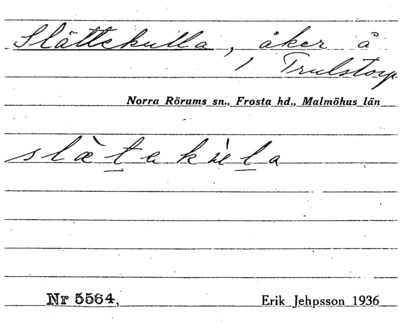 Slättekulla, åker å
1 Trulstorp
Norra Rörums sn., Frosta hd., Malmöhus län
Nr 5564.
Erik Jehpsson 1936